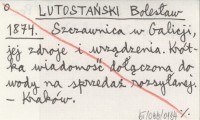 LUTOSTAŃSKI Bolesław
1874. Szczawnica w Galicji,
jej zdroje i urządzenia. Krót-
ka wiadomość dołączona do
wody na sprzedaż rozsyłanej.
- Kraków.